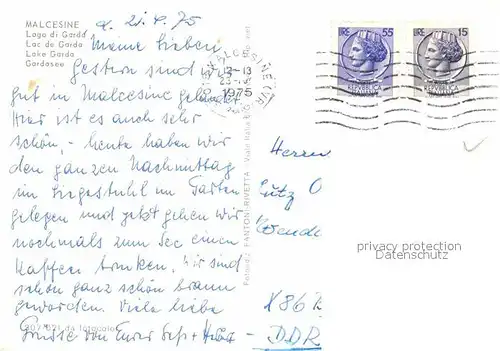 MALCESINE
Lago di Garda
Lac de Garda
Lake Garda
Gardasee
d. 21.4.75
Meine Lieben,
Gestern sind wir
gut in Malcesine gelandet
Hier ist es auch sehr
schön, - heute haben wir
den ganzen Nachmittag
im Liegestuhl im Garten
gelegen und jetzt gehen wir
nochmals zum See einen
Kaffee trinken. Wir sind
schon ganz schön braun
geworden. Viele liebe
Grüsse von Eurer
da fotocolor
Fotoediz. FANTONI-RIVETTA - Viale Italia
MALCESINE
12-13
1975
LIRE 55
REPVBBLICA
LIRE 15
REPVBBLICA
Herrn
Lutz
X86
DDR
privacy protection
Datenschutz